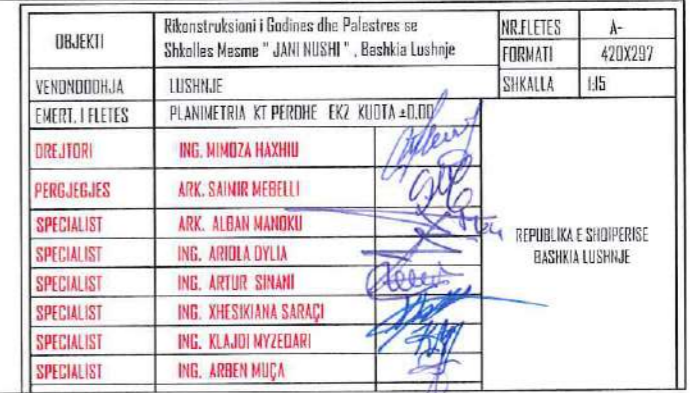 OBJEKTI
Rikonstruksioni i Godines dhe Palestres se
Shkolles Mesme " JANI NUSHI " , Bashkia Lushnje
NR.FLETES A-
FORMATI 420X297
VENDNODODHJA LUSHNJE
SHKALLA 1:15
EMERT. I FLETES PLANIMETRIA KT PERDHE EK2 KUOTA ±0.00
DREJTORI ING. MIMOZA HAXHIU
PERGJEGJES ARK. SAIMIR MEBELLI
SPECIALIST ARK. ALBAN MANOKU
SPECIALIST ING. ARIOLA DYLIA
SPECIALIST ING. ARTUR SINANI
SPECIALIST ING. XHESIKIANA SARAÇI
SPECIALIST ING. KLAJDI MYZEQARI
SPECIALIST ING. ARBEN MUÇA
REPUBLIKA E SHQIPERISE
BASHKIA LUSHNJE